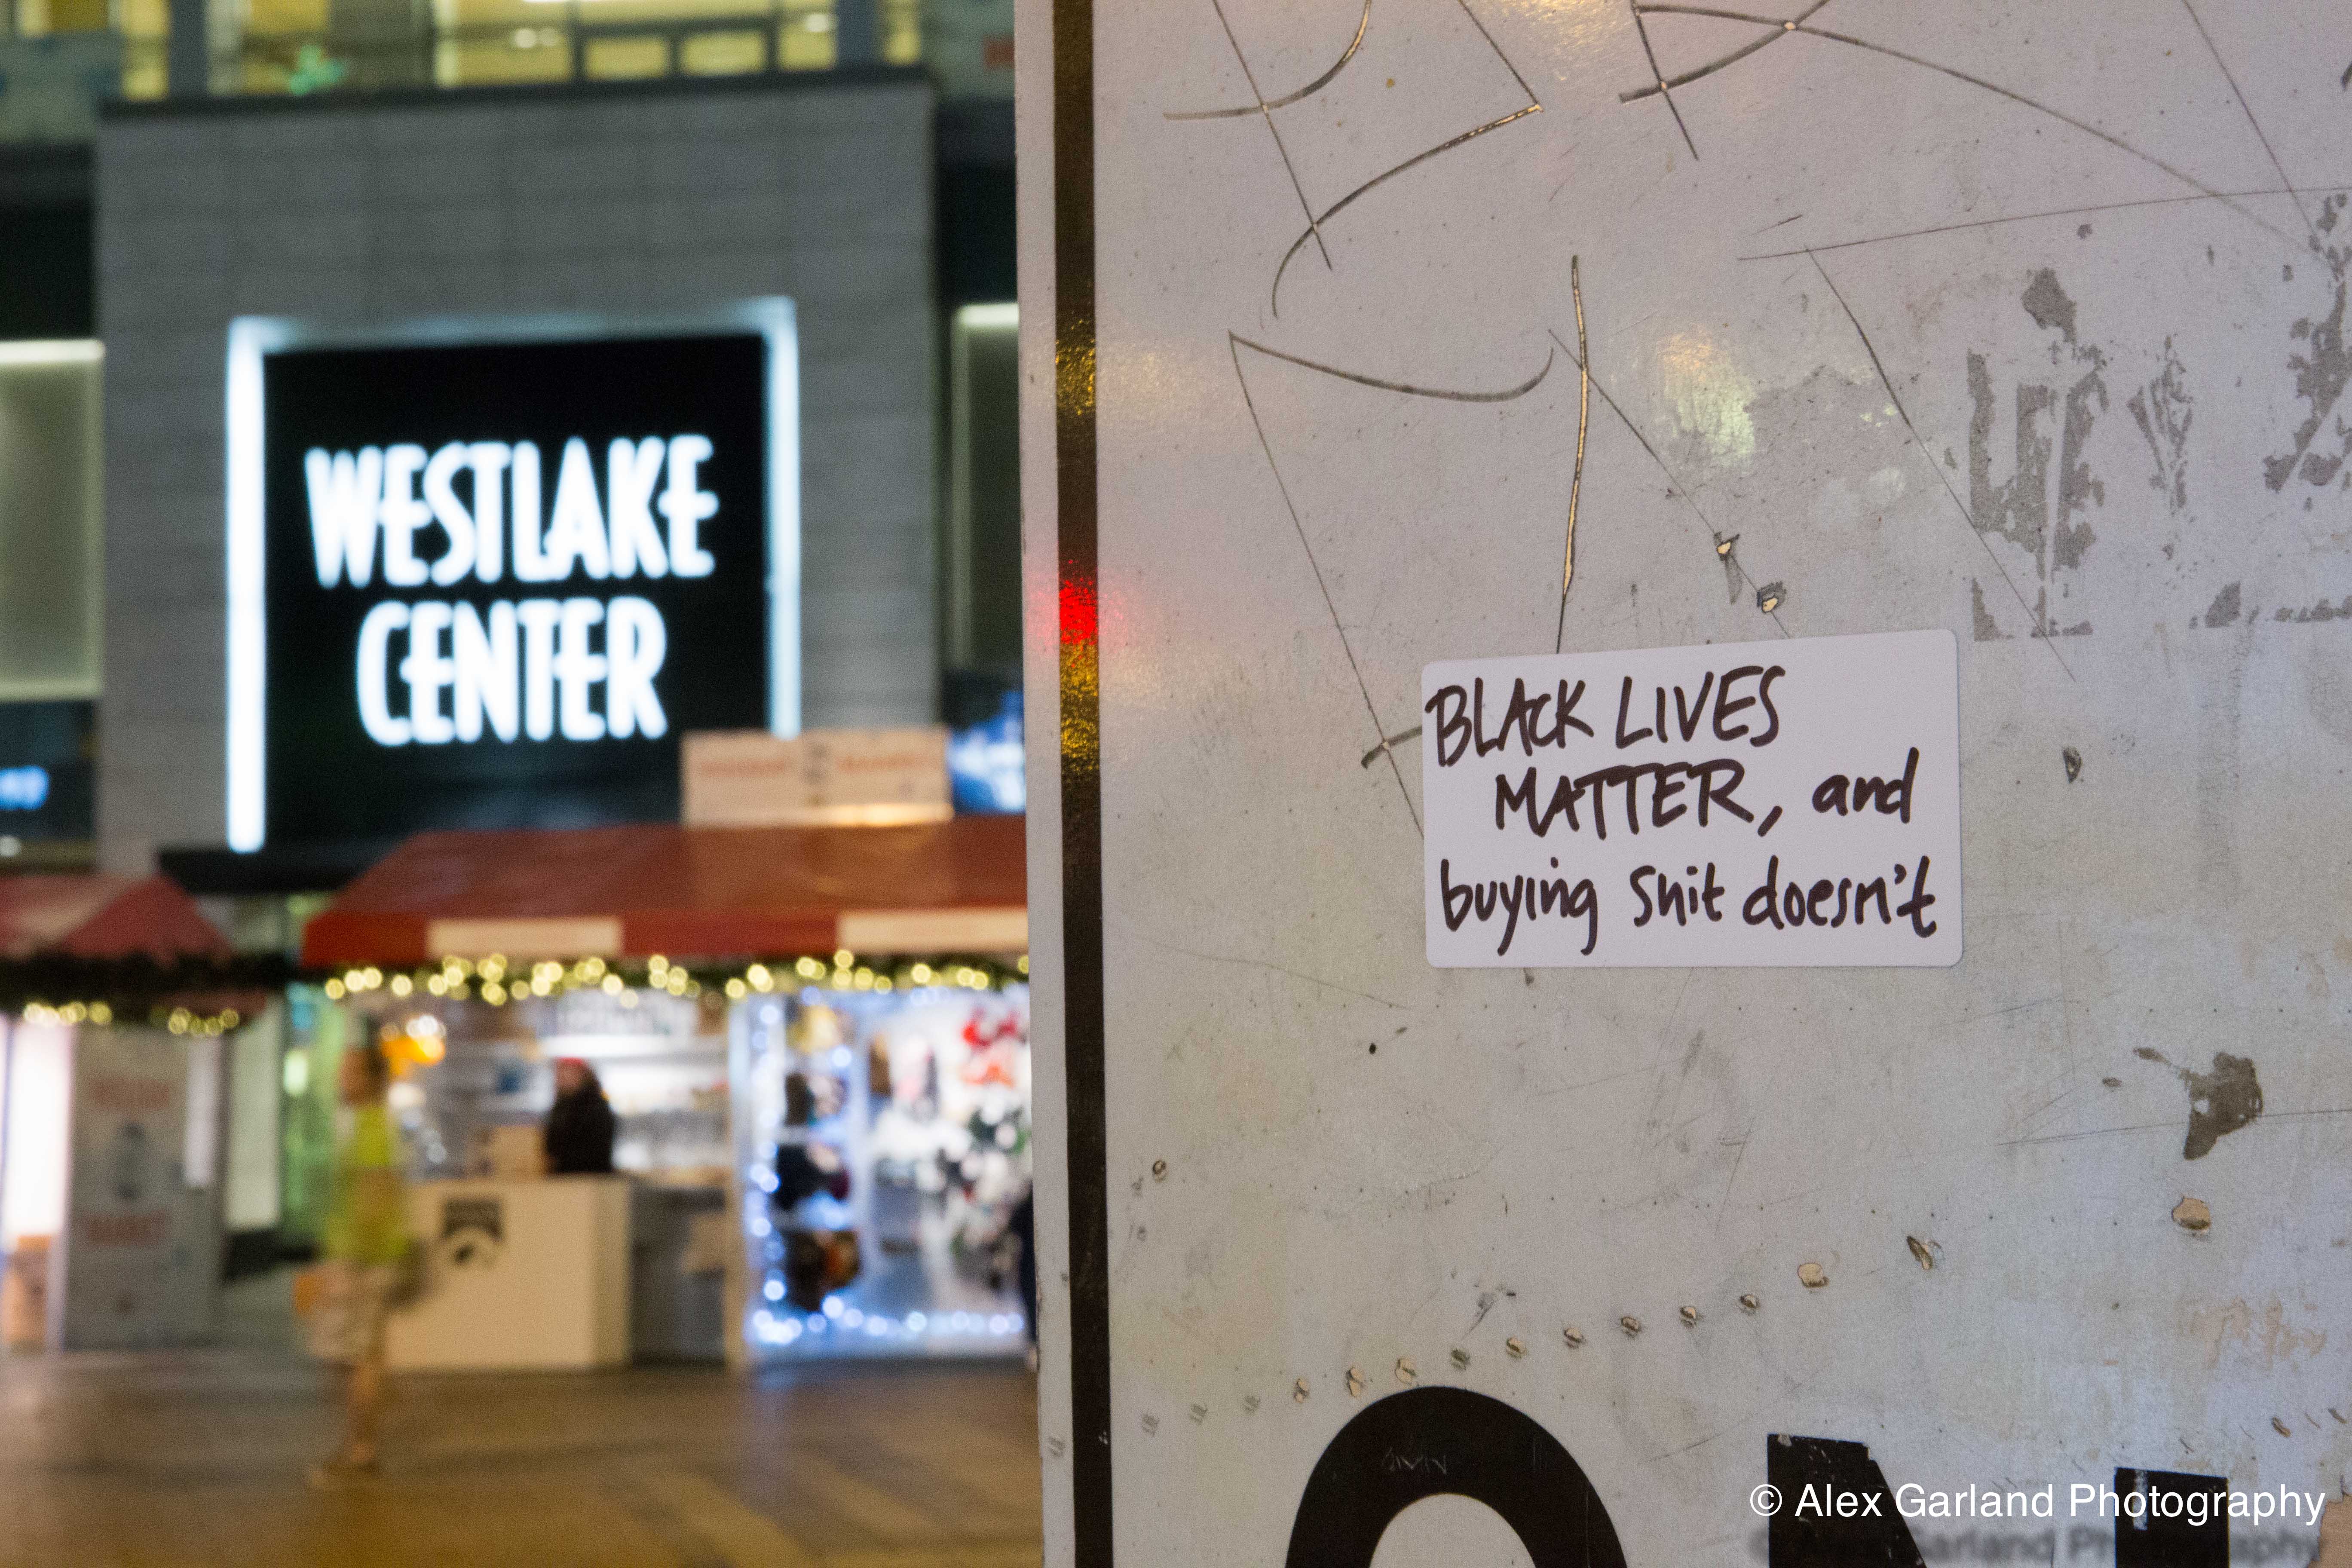 WESTLAKE
CENTER
BLACK LIVES
MATTER, and
buying Shit doesn't
© Alex Garland Photography